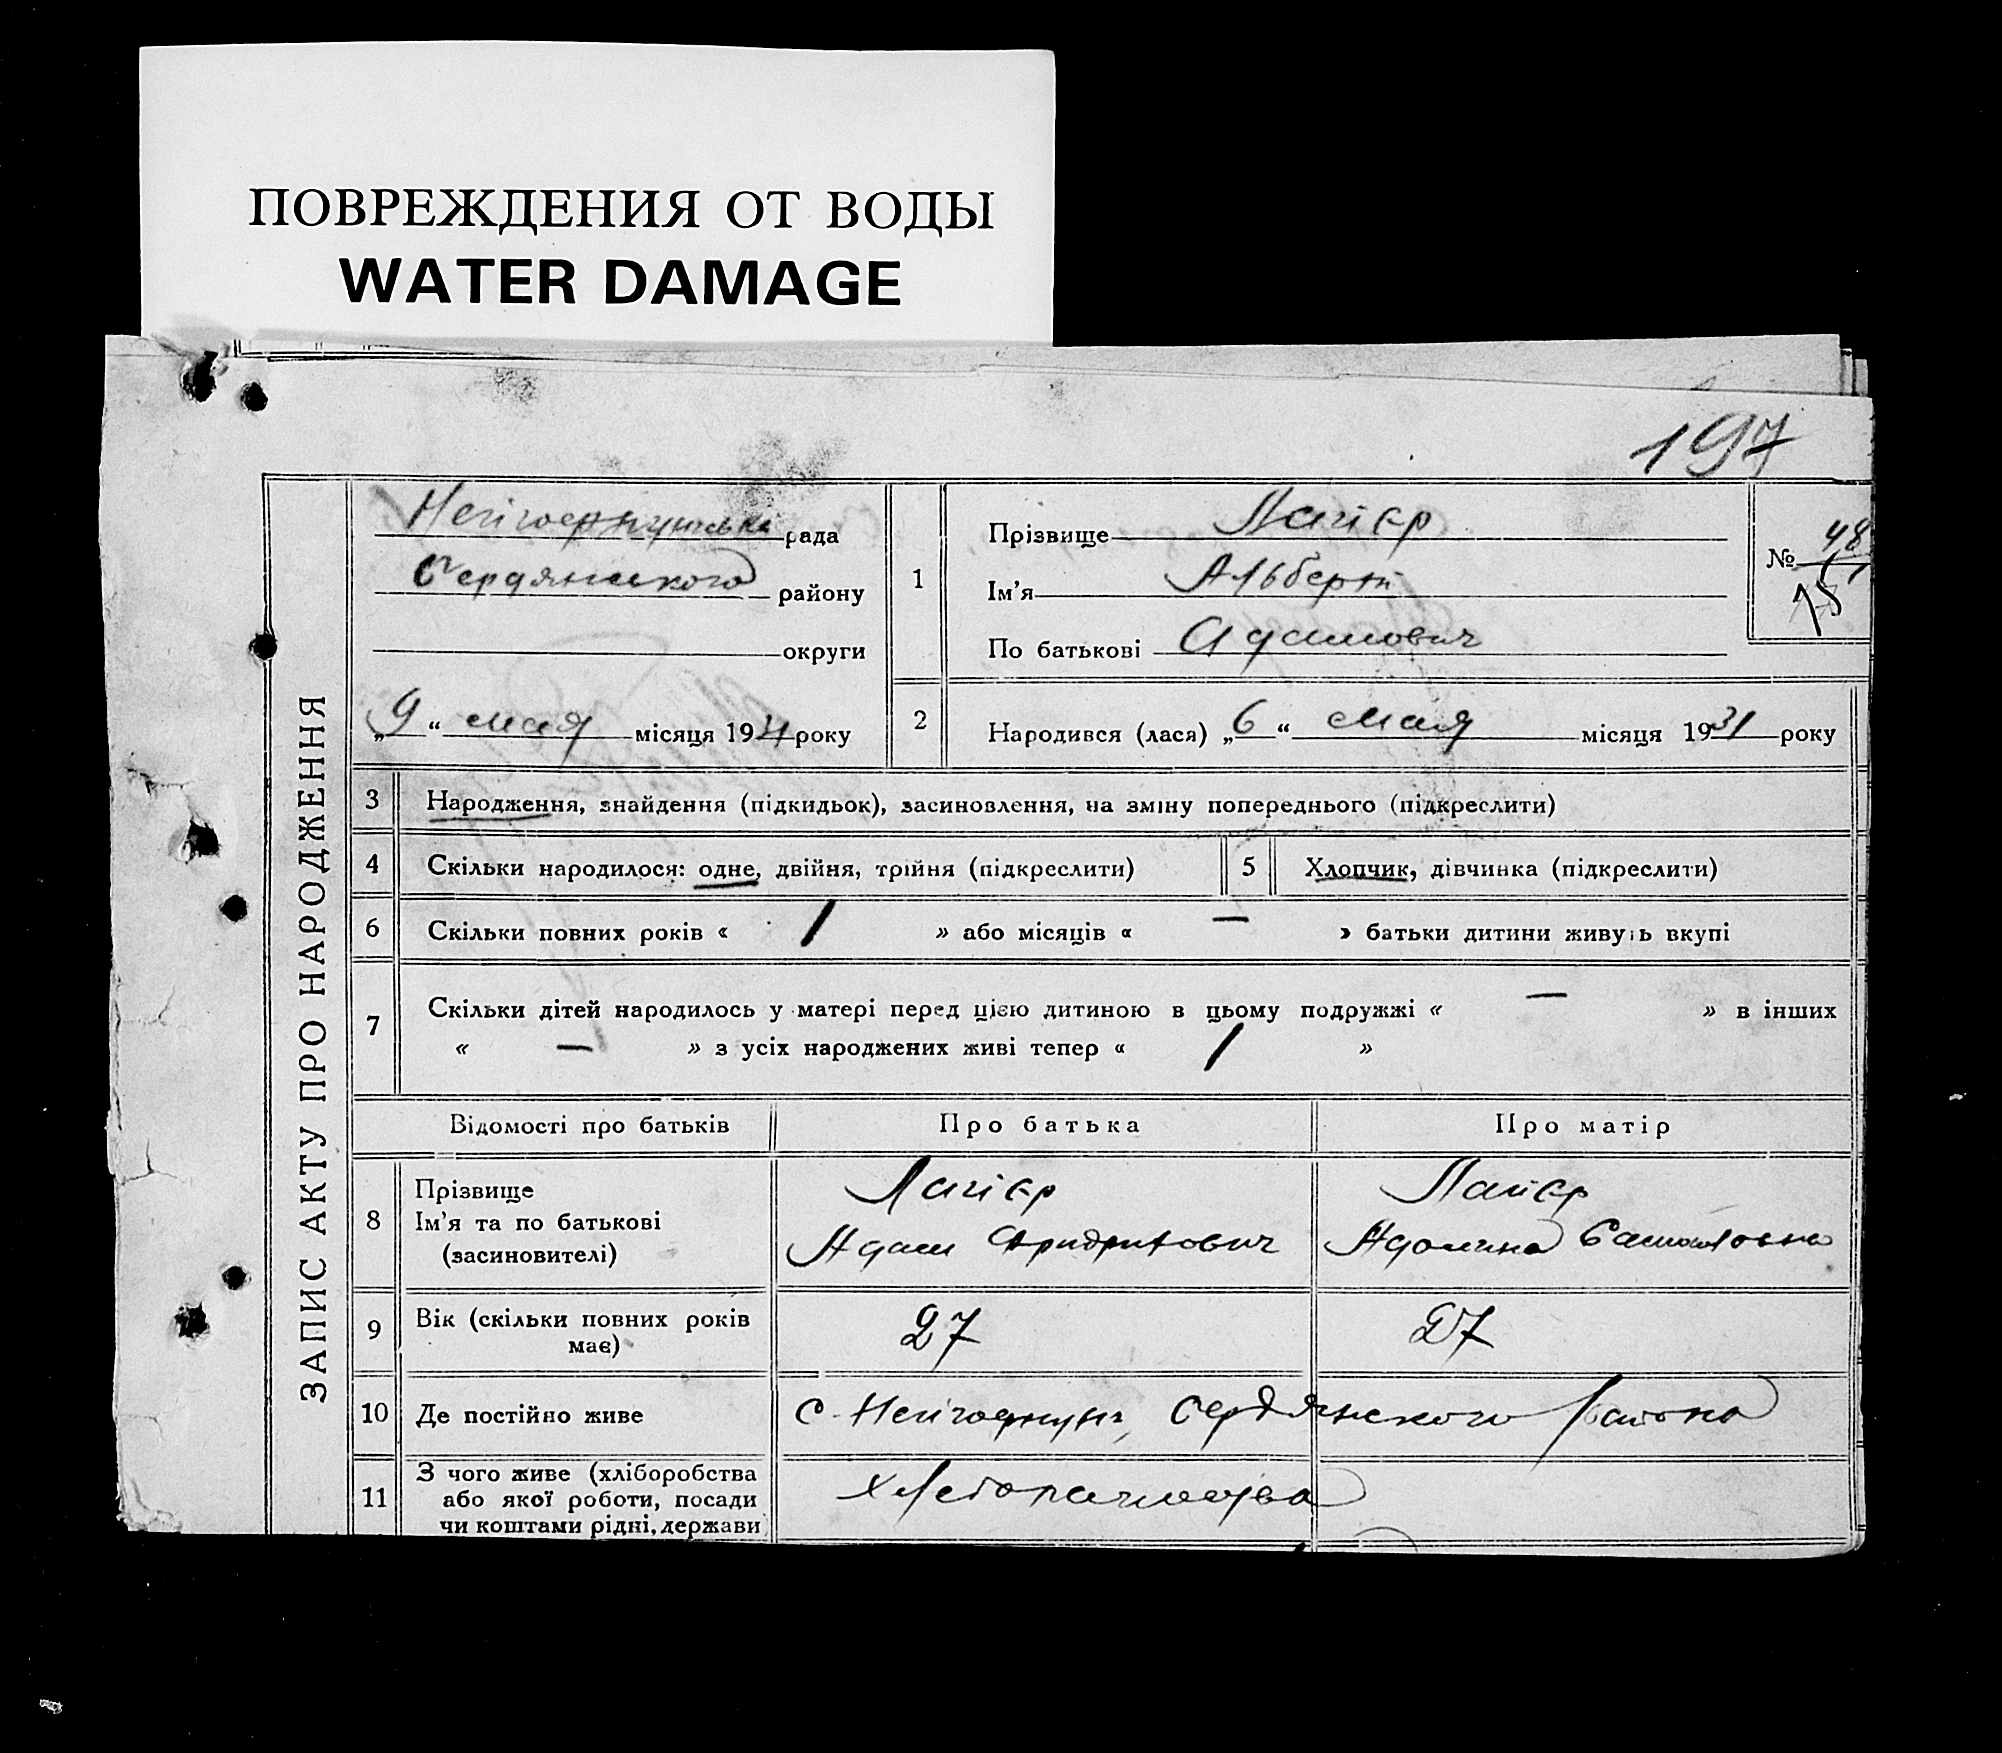 ПОВРЕЖДЕНИЯ ОТ ВОДЫ
WATER DAMAGE
197
ЗАПИС АКТУ ПРО НАРОДЖЕННЯ
рада
району
округи
„9“ мая місяця 1931 року
1
Прізвище Лайєр
Ім'я Альберт
По батькові Адамович
№ 48
2
Народився (лася) „6“ мая місяця 1931 року
3 Народження, знайдення (підкидьок), засиновлення, на зміну попереднього (підкреслити)
4 Скільки народилося: одне, двійня, трійня (підкреслити)
5 Хлопчик, дівчинка (підкреслити)
6 Скільки повних років « 1 » або місяців « — » батьки дитини живуть вкупі
7 Скільки дітей народилось у матері перед цією дитиною в цьому подружжі « — » в інших
« — » з усіх народжених живі тепер « 1 »
Відомості про батьків Про батька Про матір
8
Прізвище Лайєр Лайєр
Ім'я та по батькові Адам Фридрихович
(засиновителі)
9 Вік (скільки повних років 27 27
має)
10 Де постійно живе с. района
11
З чого живе (хліборобства
або якої роботи, посади
чи коштами рідні, держави